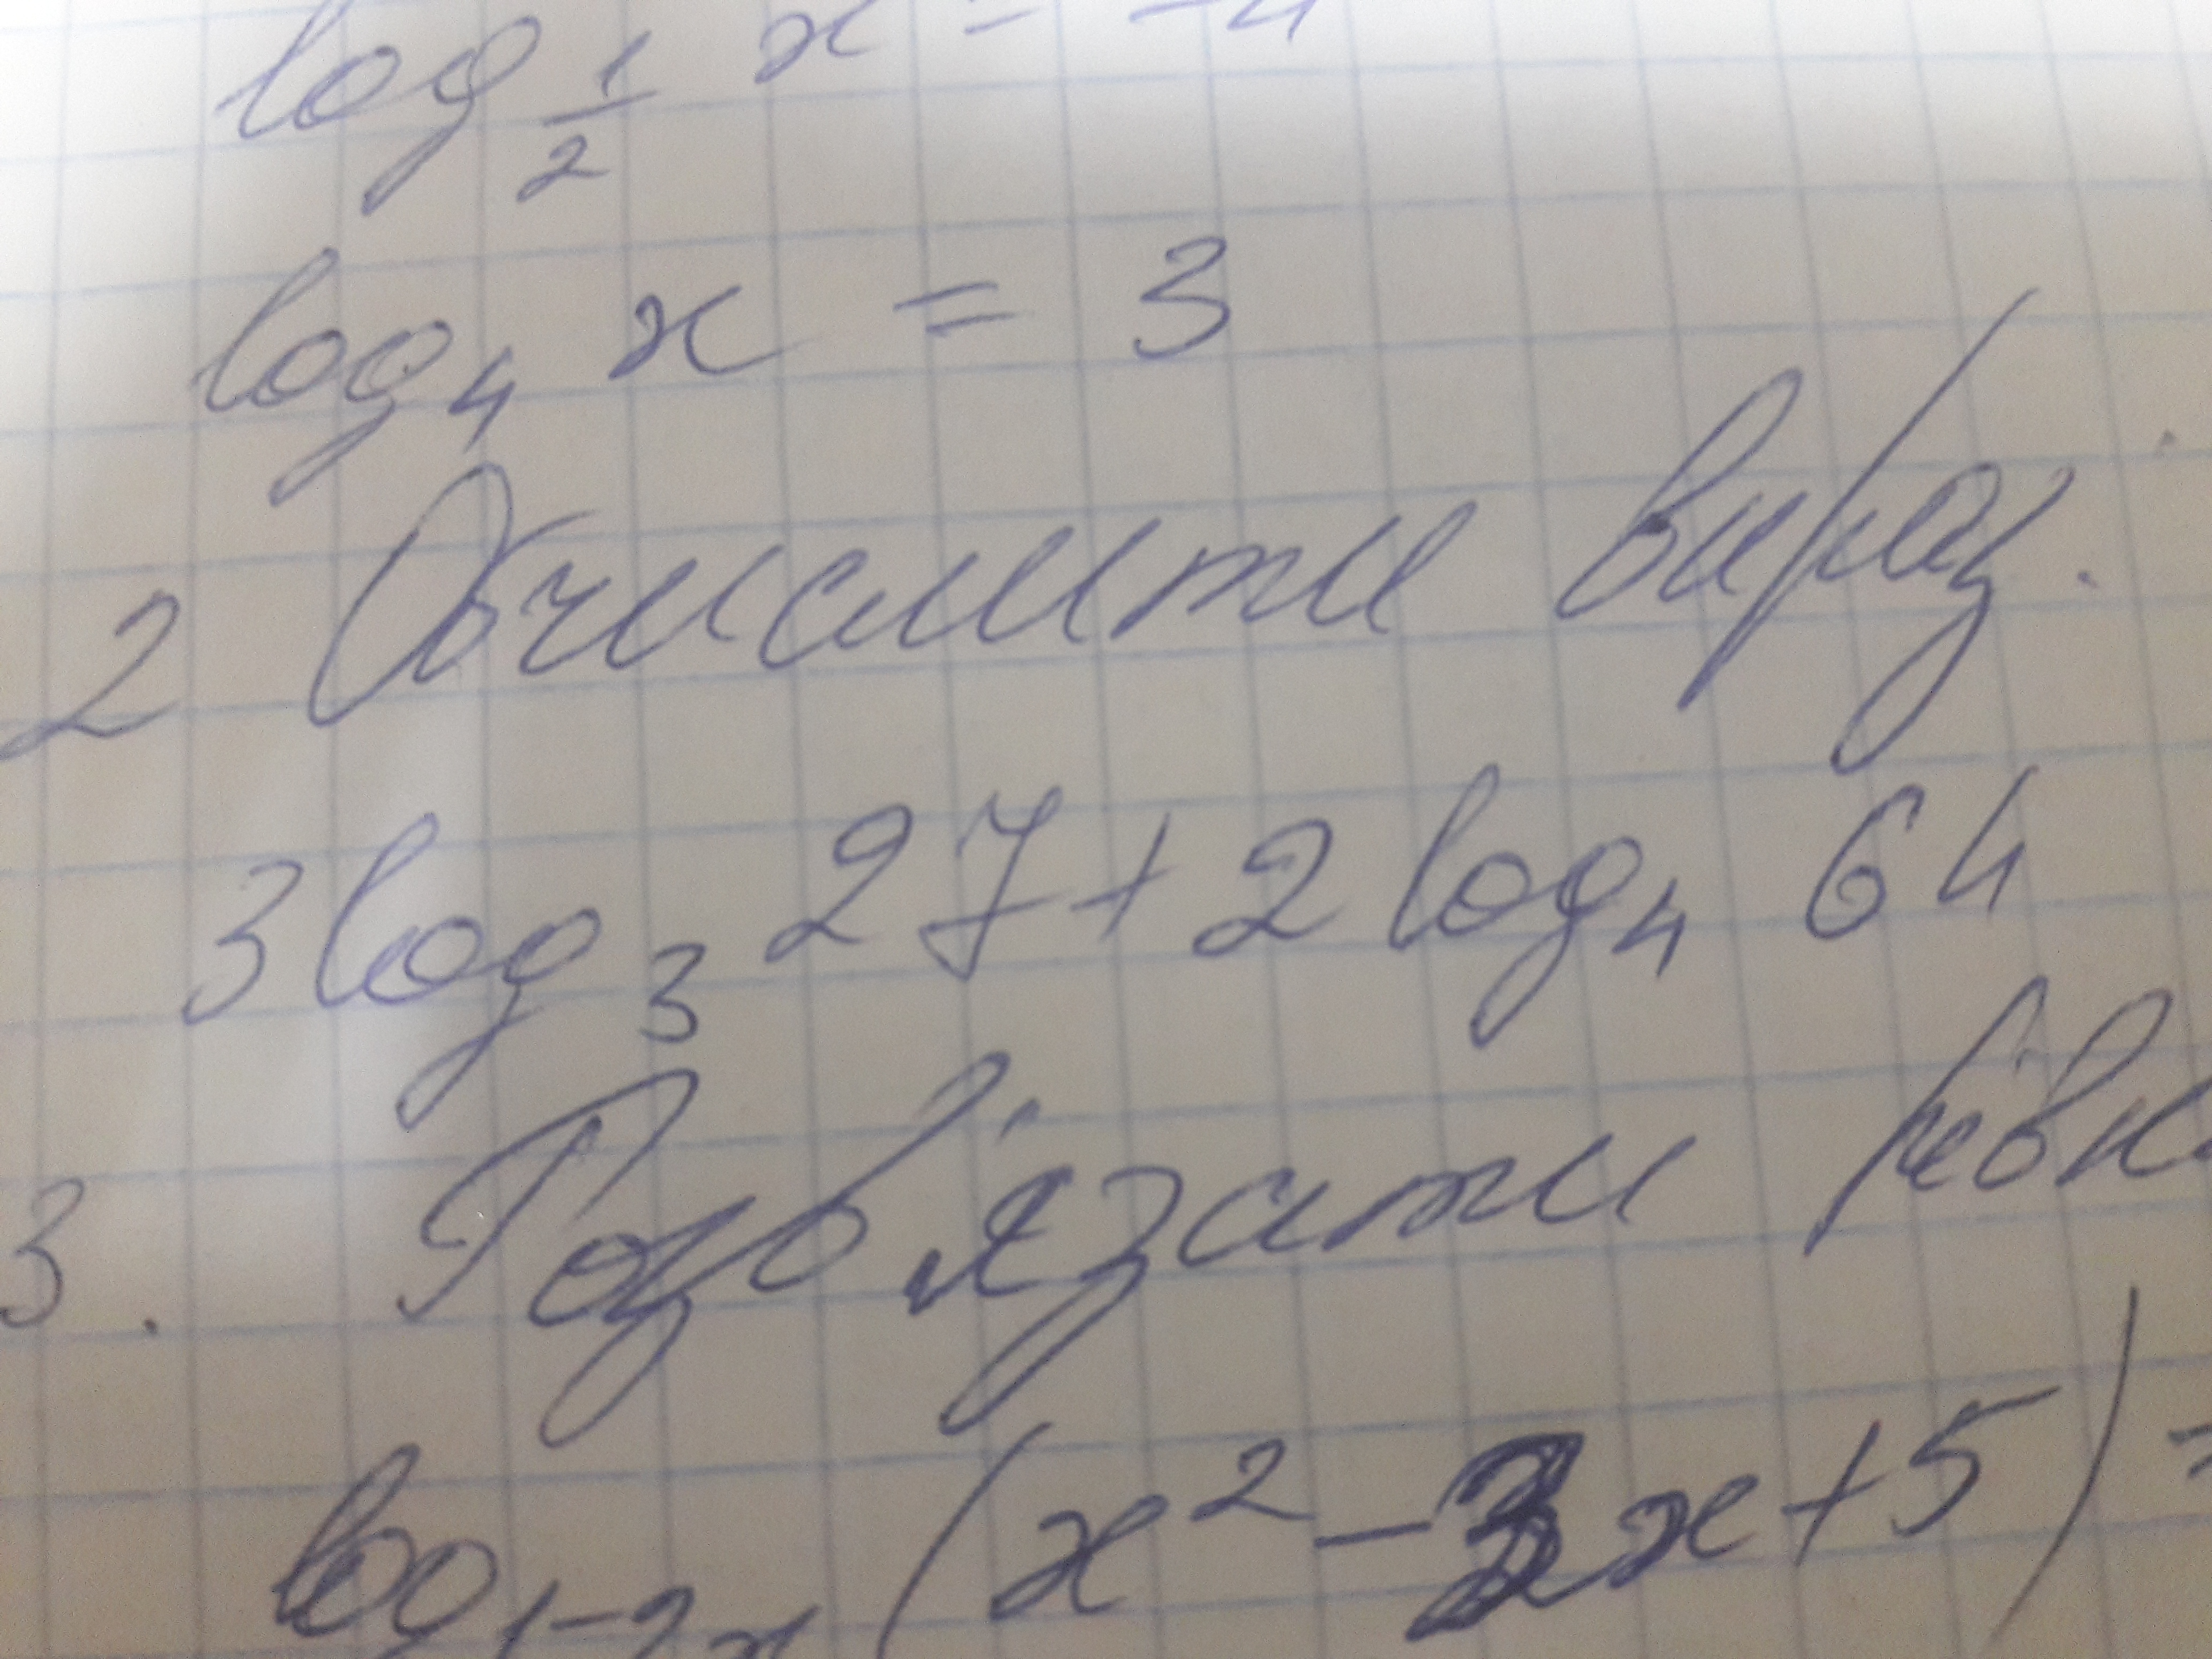 log 1/2 x = -4
log₄ x = 3
2 Обчислити вираз.
3 log₃ 27 + 2 log₄ 64
3. Розв'язати рівн
(x² - x + 5) =